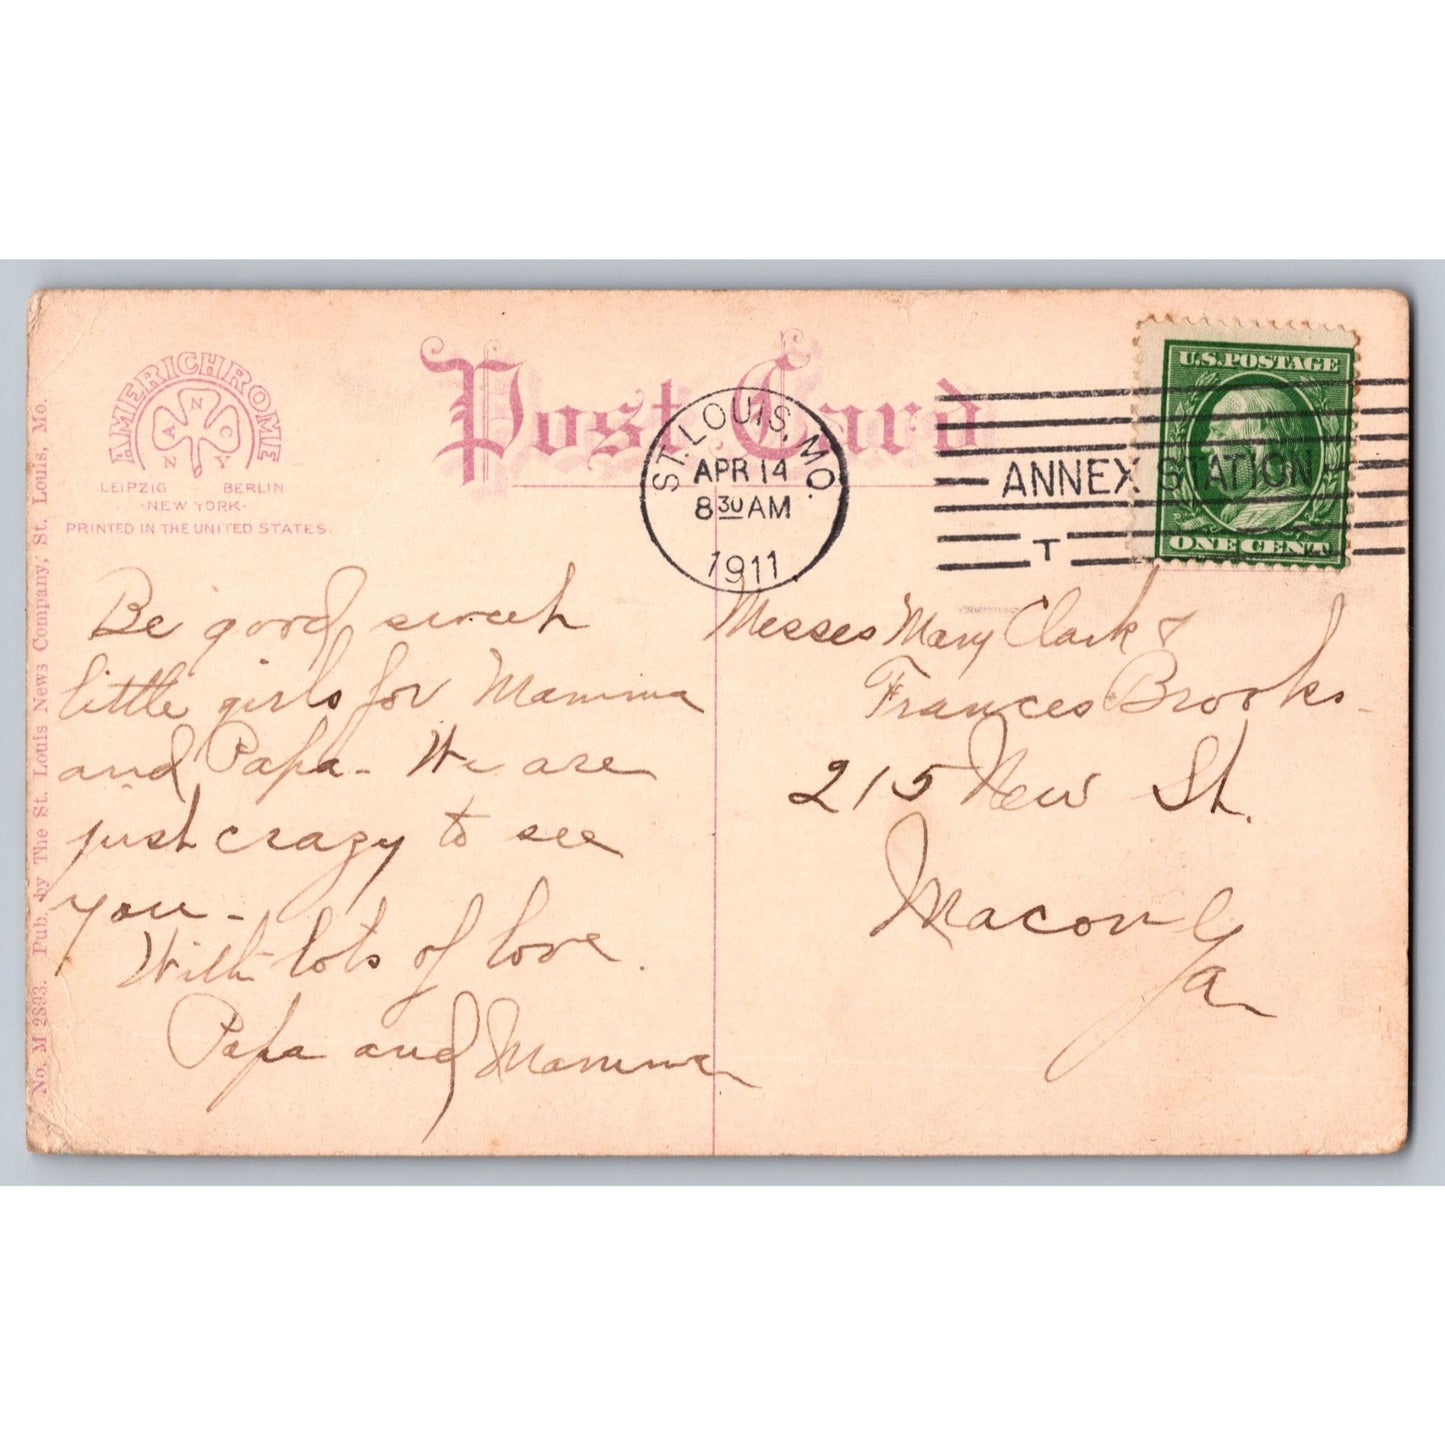 AMERICHROME
N
A C
N Y
LEIPZIG BERLIN
·NEW YORK·
PRINTED IN THE UNITED STATES.
Post Card
ST. LOUIS, MO.
APR 14
8 30 AM
1911
ANNEX STATION
T
U.S. POSTAGE
ONE CENT
No. M 2893. Pub. by The St. Louis News Company, St. Louis, Mo.
Be good sweet
little girls for Mamma
and Papa - We are
just crazy to see
you -
With lots of love.
Papa and Mamma
Messes Mary Clark &
Frances Brooks -
215 New St.
Macon
Ga